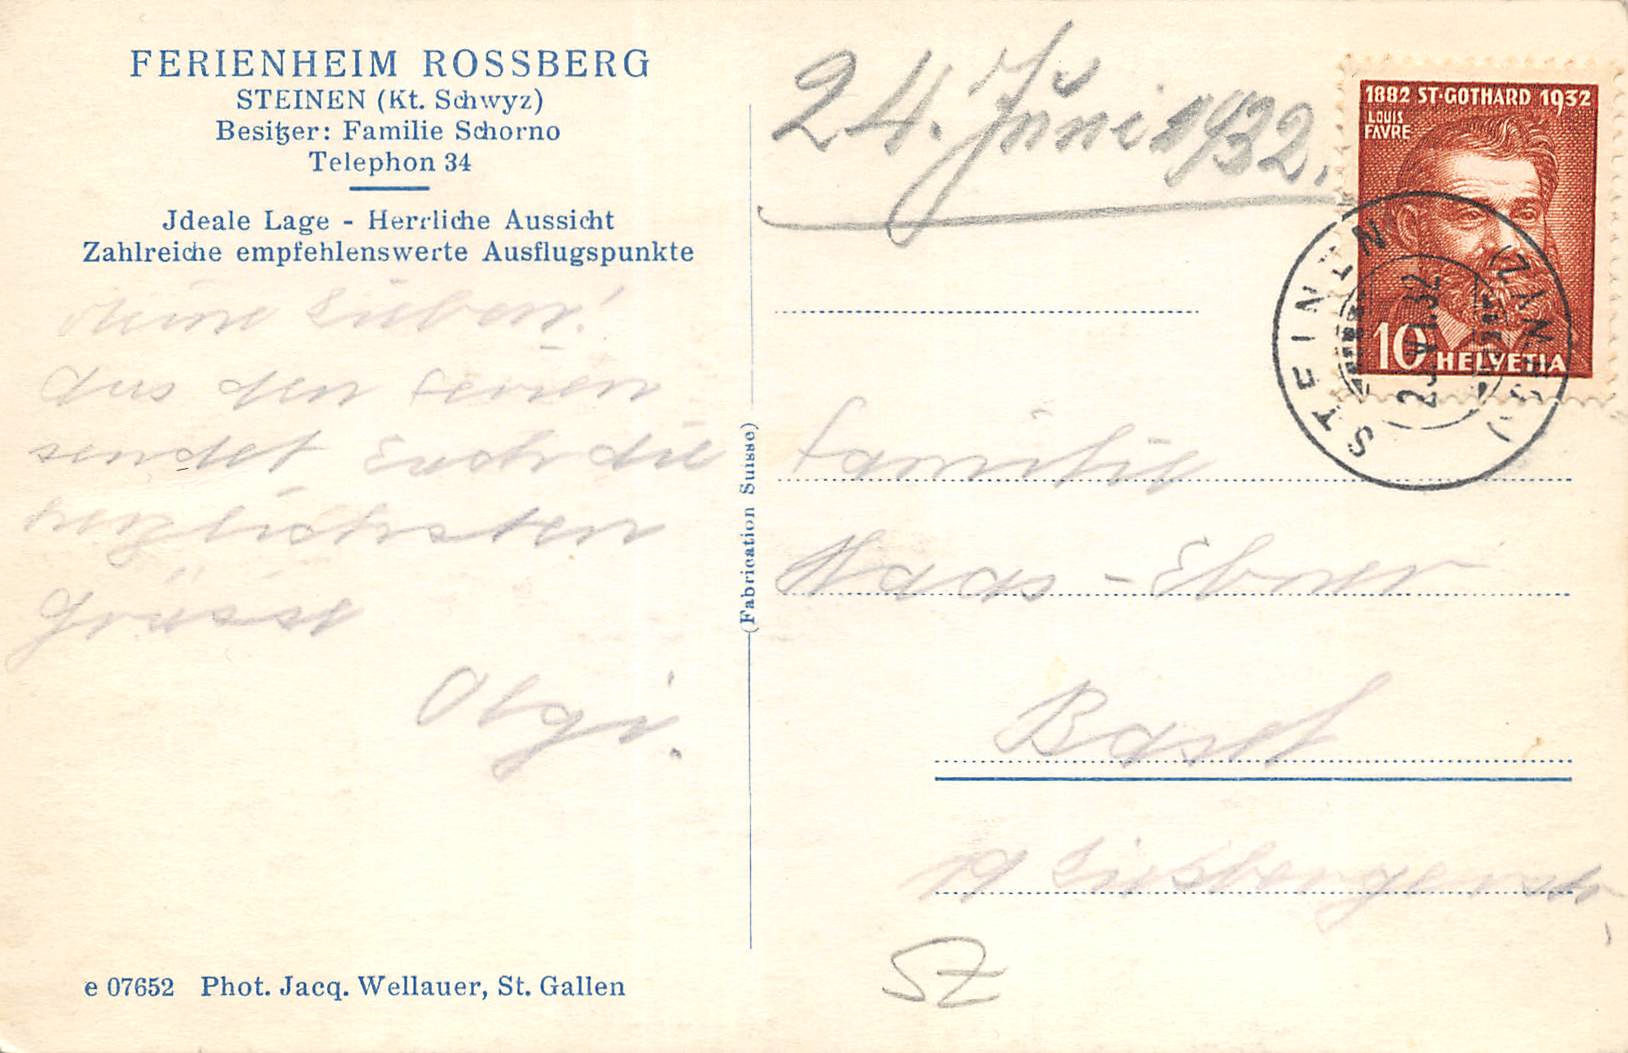 FERIENHEIM ROSSBERG
STEINEN (Kt. Schwyz)
Besitzer: Familie Schorno
Telephon 34
Jdeale Lage - Herrliche Aussicht
Zahlreiche empfehlenswerte Ausflugspunkte
Meine Lieben!
Aus den Ferien
sendet Euch die
herzlichsten
Grüsse
Olgi.
e 07652 Phot. Jacq. Wellauer, St. Gallen
(Fabrication Suisse)
24. Juni 1932.
1882 ST-GOTHARD 1932
LOUIS
FAVRE
10 HELVETIA
STEINEN (SCHWYZ)
VI. 32
Familie
Haas-Ebner
Basel
19
SZ